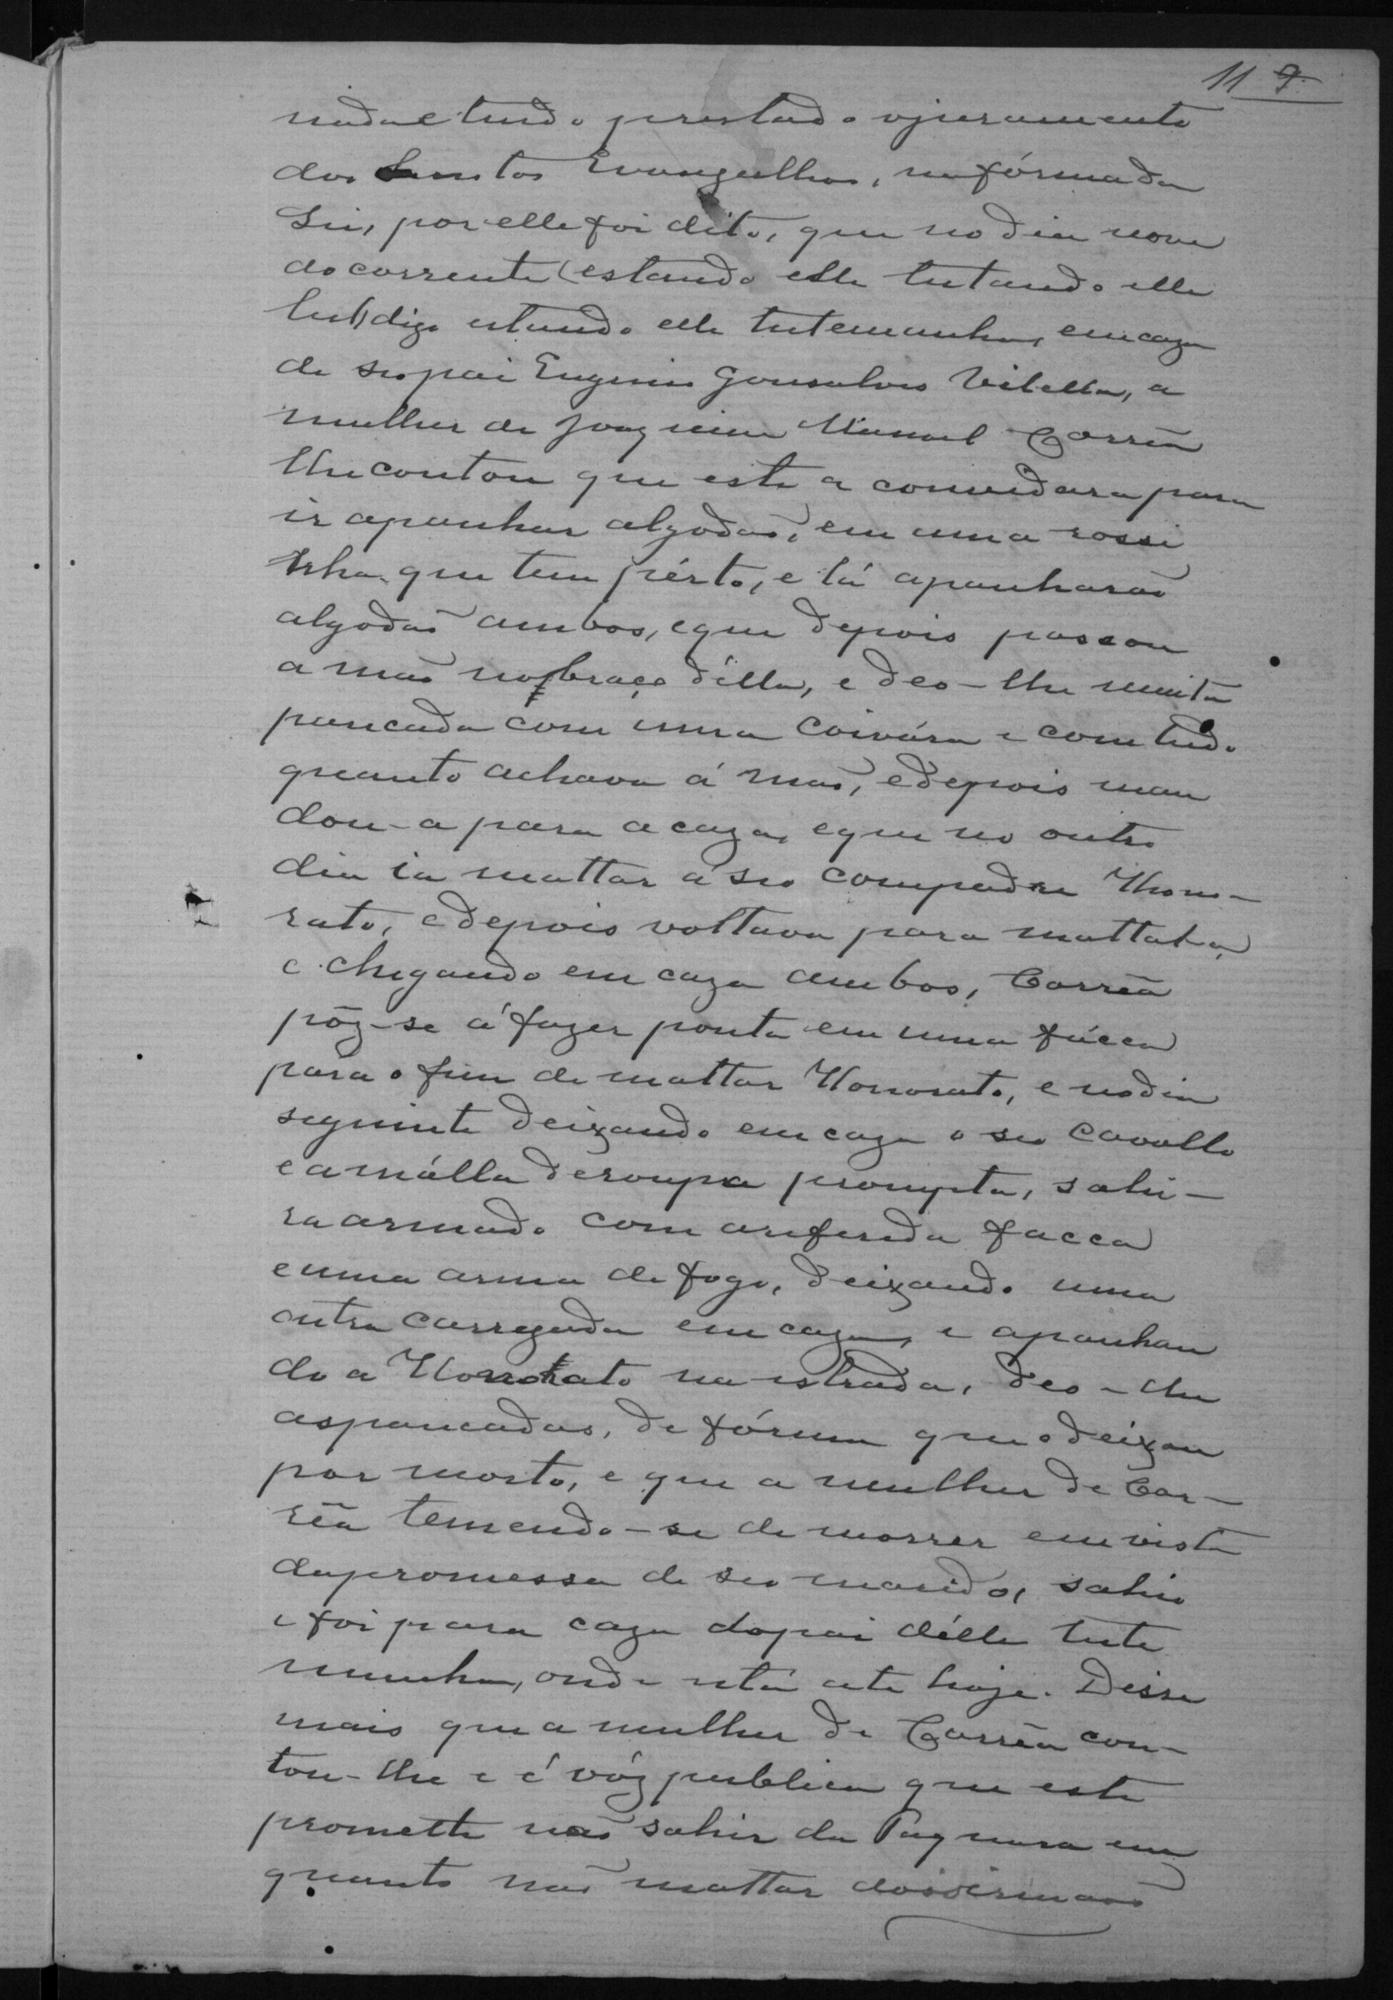 11 9
nada e tendo prestado o juramento
dos Santos Evangelhos, na fórma da
Lei, por elle foi dito, que no dia nove
do corrente (estando elle testando elle
test) digo estando elle testemunha, em caza
de seo pai Eugenio Gonsalves Vilella, a
mulher de Joaquim Manoel Corrêa
lhe contou que este a convidara para
ir apanhar algodão, em uma rossi
nha que tem pérto, e lá apanharão
algodão ambos, e que depois passou
a mão no braço d'élla, e deo-lhe muita
pancada com uma coivára e com tudo
quanto achava á mão, e depois man
dou-a para a caza, e que no outro
dia ia mattar á seo compadre Hono-
rato, e depois voltava para mattal-a,
e chegando em caza ambos, Corrêa
pôz-se á fazer ponta em uma fácca
para o fim de mattar Honorato, e no dia
seguinte deixando em caza o seo cavallo
e a málla de roupa prompta, sahi-
ra armado com a referida facca
e uma arma de fogo, deixando uma
outra carregada em caza, e apanhan
do a Honorato na estrada, deo-lhe
as pancadas, de fórma que o deixou
por morto, e que a mulher de Cor-
rêa temendo-se de morrer em vista
da promessa de seo marido, sahio
e foi para caza do pai délle teste
munha, onde está até hoje. Disse
mais que a mulher de Corrêa con-
tou-lhe e é vóz publica que este
promette não sahir da Taquara em
quanto não mattar dois irmãos